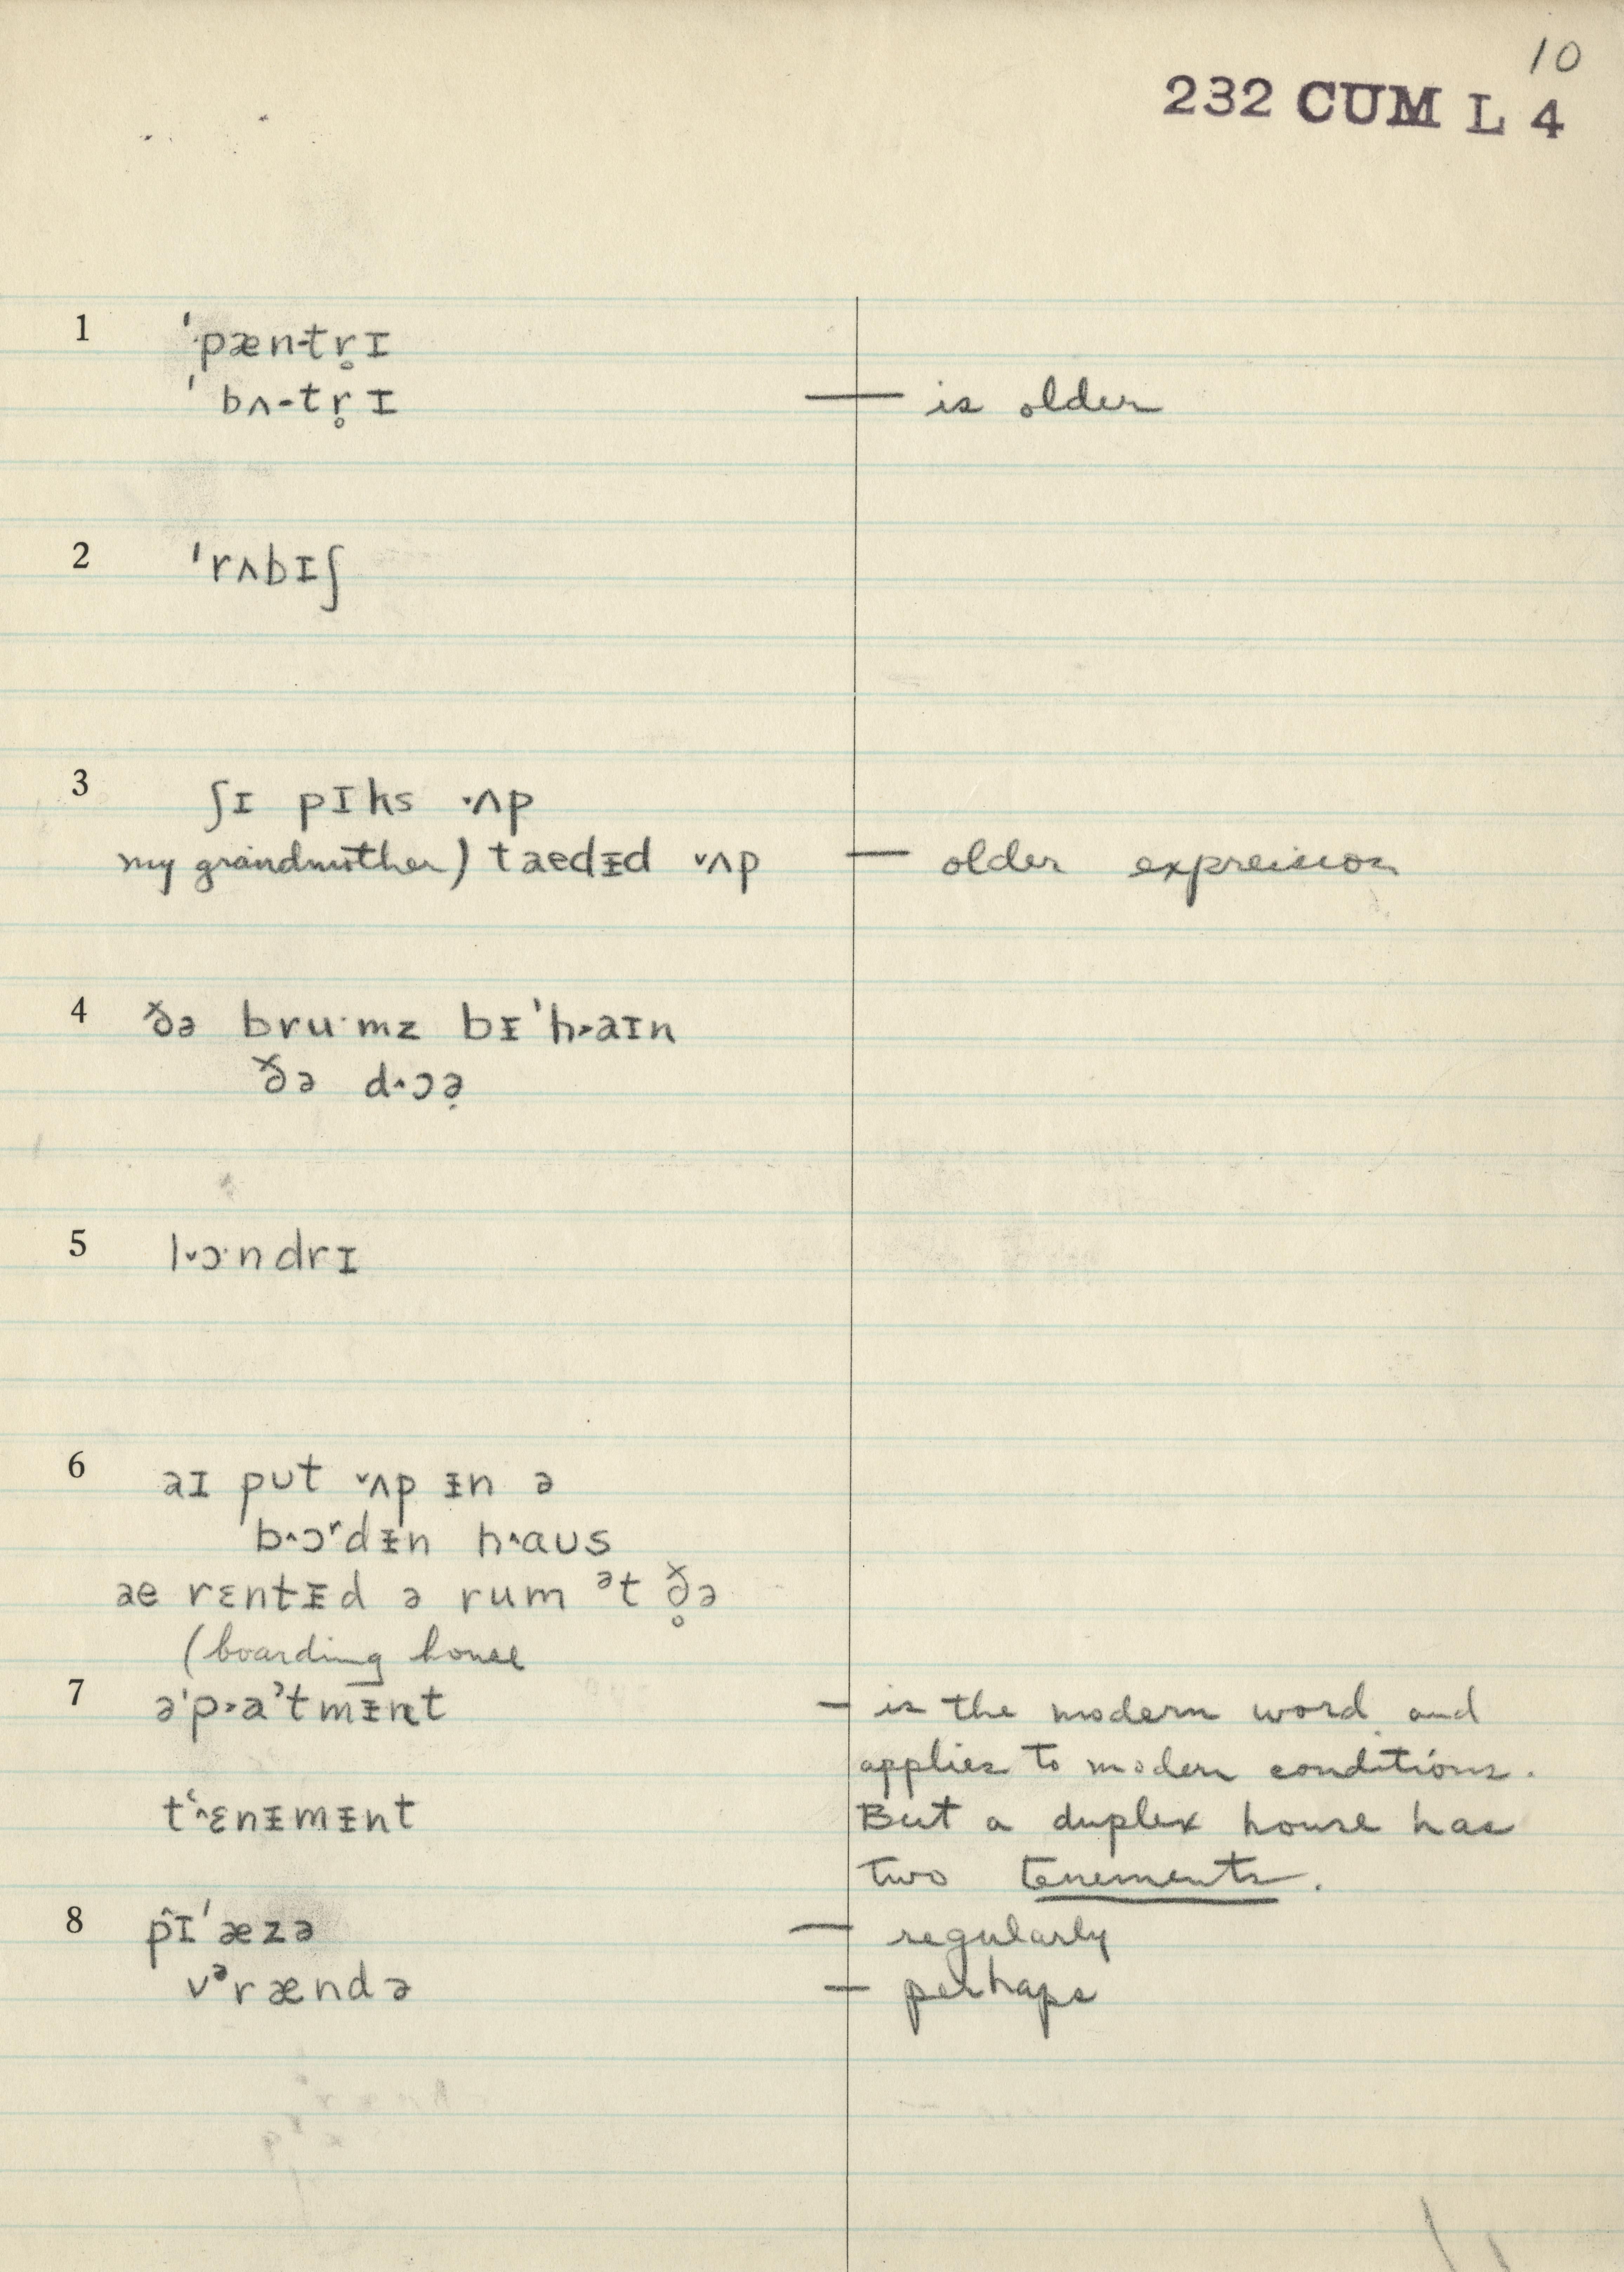 10
232 CUM L 4
1 ˈpæn-tr̥ɪ
ˈbʌ-tr̥ɪ — is older
2 ˈrʌbɪʃ
3 ʃɪ pɪks ˑʌp
my grandmother) taedᵻd ˇʌp — older expression
4 ðə bruˑmz bᵻˈh˃aɪn
ðə d^ɔə̣
5 lˇɔˑndrɪ
6 aɪ put ˇʌp ᵻn ə
b^ɔʳdᵻn h^aus
ae rɛntᵻd ə rum ᵊt ð̥ə
(boarding house
7 əˈp˃aᵊtmᵻnt — is the modern word and
applies to modern conditions.
tʻ^ɛnᵻmᵻnt But a duplex house has
two tenements.
8 p̂ɪˈæzə — regularly
vᵊrændə — perhaps